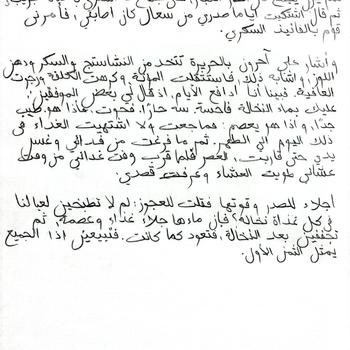 ثم قال اشتكيت أياما صدري من سعال كان أصابني، فأمرني
قوم بالفانيذ السكري.
وأشار علي آخرون بالحريرة تتخذ من النشاستج والسكر ودهن
اللوز، وأشباه ذلك. فاستثقلت المؤنة وكرهت الكلفة ورجوت
العافية. فبينا أنا أدافع الأيام، إذ قال لي بعض الموفقين:
عليك بماء النخالة فاحسه حارا، فحسوت، فإذا هو طيب
جدا، وإذا هو يعصم: فما جعت ولا اشتهيت الغداء في
ذلك اليوم إلى الظهر. ثم ما فرغت من غدائي وغسل
يدي حتى قاربت العصر فلما قرب وقت غدائي من وقت
عشائي طويت العشاء وعرفت قصدي.
أجلاء للصدر وقوتها فقلت للعجوز: لم لا تطبخين لعيالنا
في كل غداة نخالة؟ فإن ماءها جلاء غداء وعصمة، ثم
تجففين بعد النخالة، فتعود كما كانت. فتبيعين إذا الجميع
بمثل الثمن الأول.